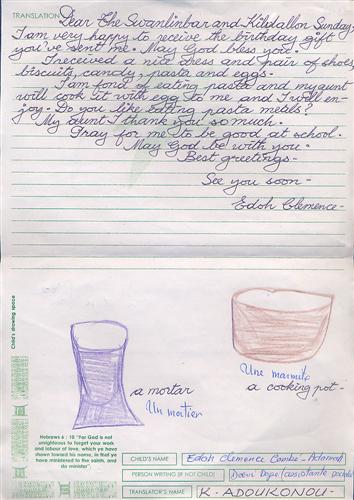 TRANSLATION Dear The Swanlinbar and Kildallon Sunday,
I am very happy to receive the birthday gift
you've sent me. May God bless you!
I received a nice dress and pair of shoes,
biscuits, candy, pasta and eggs.
I am fond of eating pasta and my aunt
will cook it with egg to me and I will en-
joy. Do you like eating pasta meals?
My aunt thank you so much.
Pray for me to be good at school.
May God be with you.
Best greetings.
See you soon.
Edoh Clemence.
Child's drawing space
a mortar
Un mortier
Une marmite
a cooking pot.
Hebrews 6 : 10 "For God is not
unrighteous to forget your work
and labour of love, which ye have
shown toward his name, in that ye
have ministered to the saints, and
do minister"
CHILD'S NAME Edoh Clemence
PERSON WRITING (IF NOT CHILD)
TRANSLATOR'S NAME K. ADOUKONOU